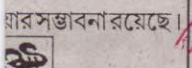 যার সম্ভাবনা রয়েছে।